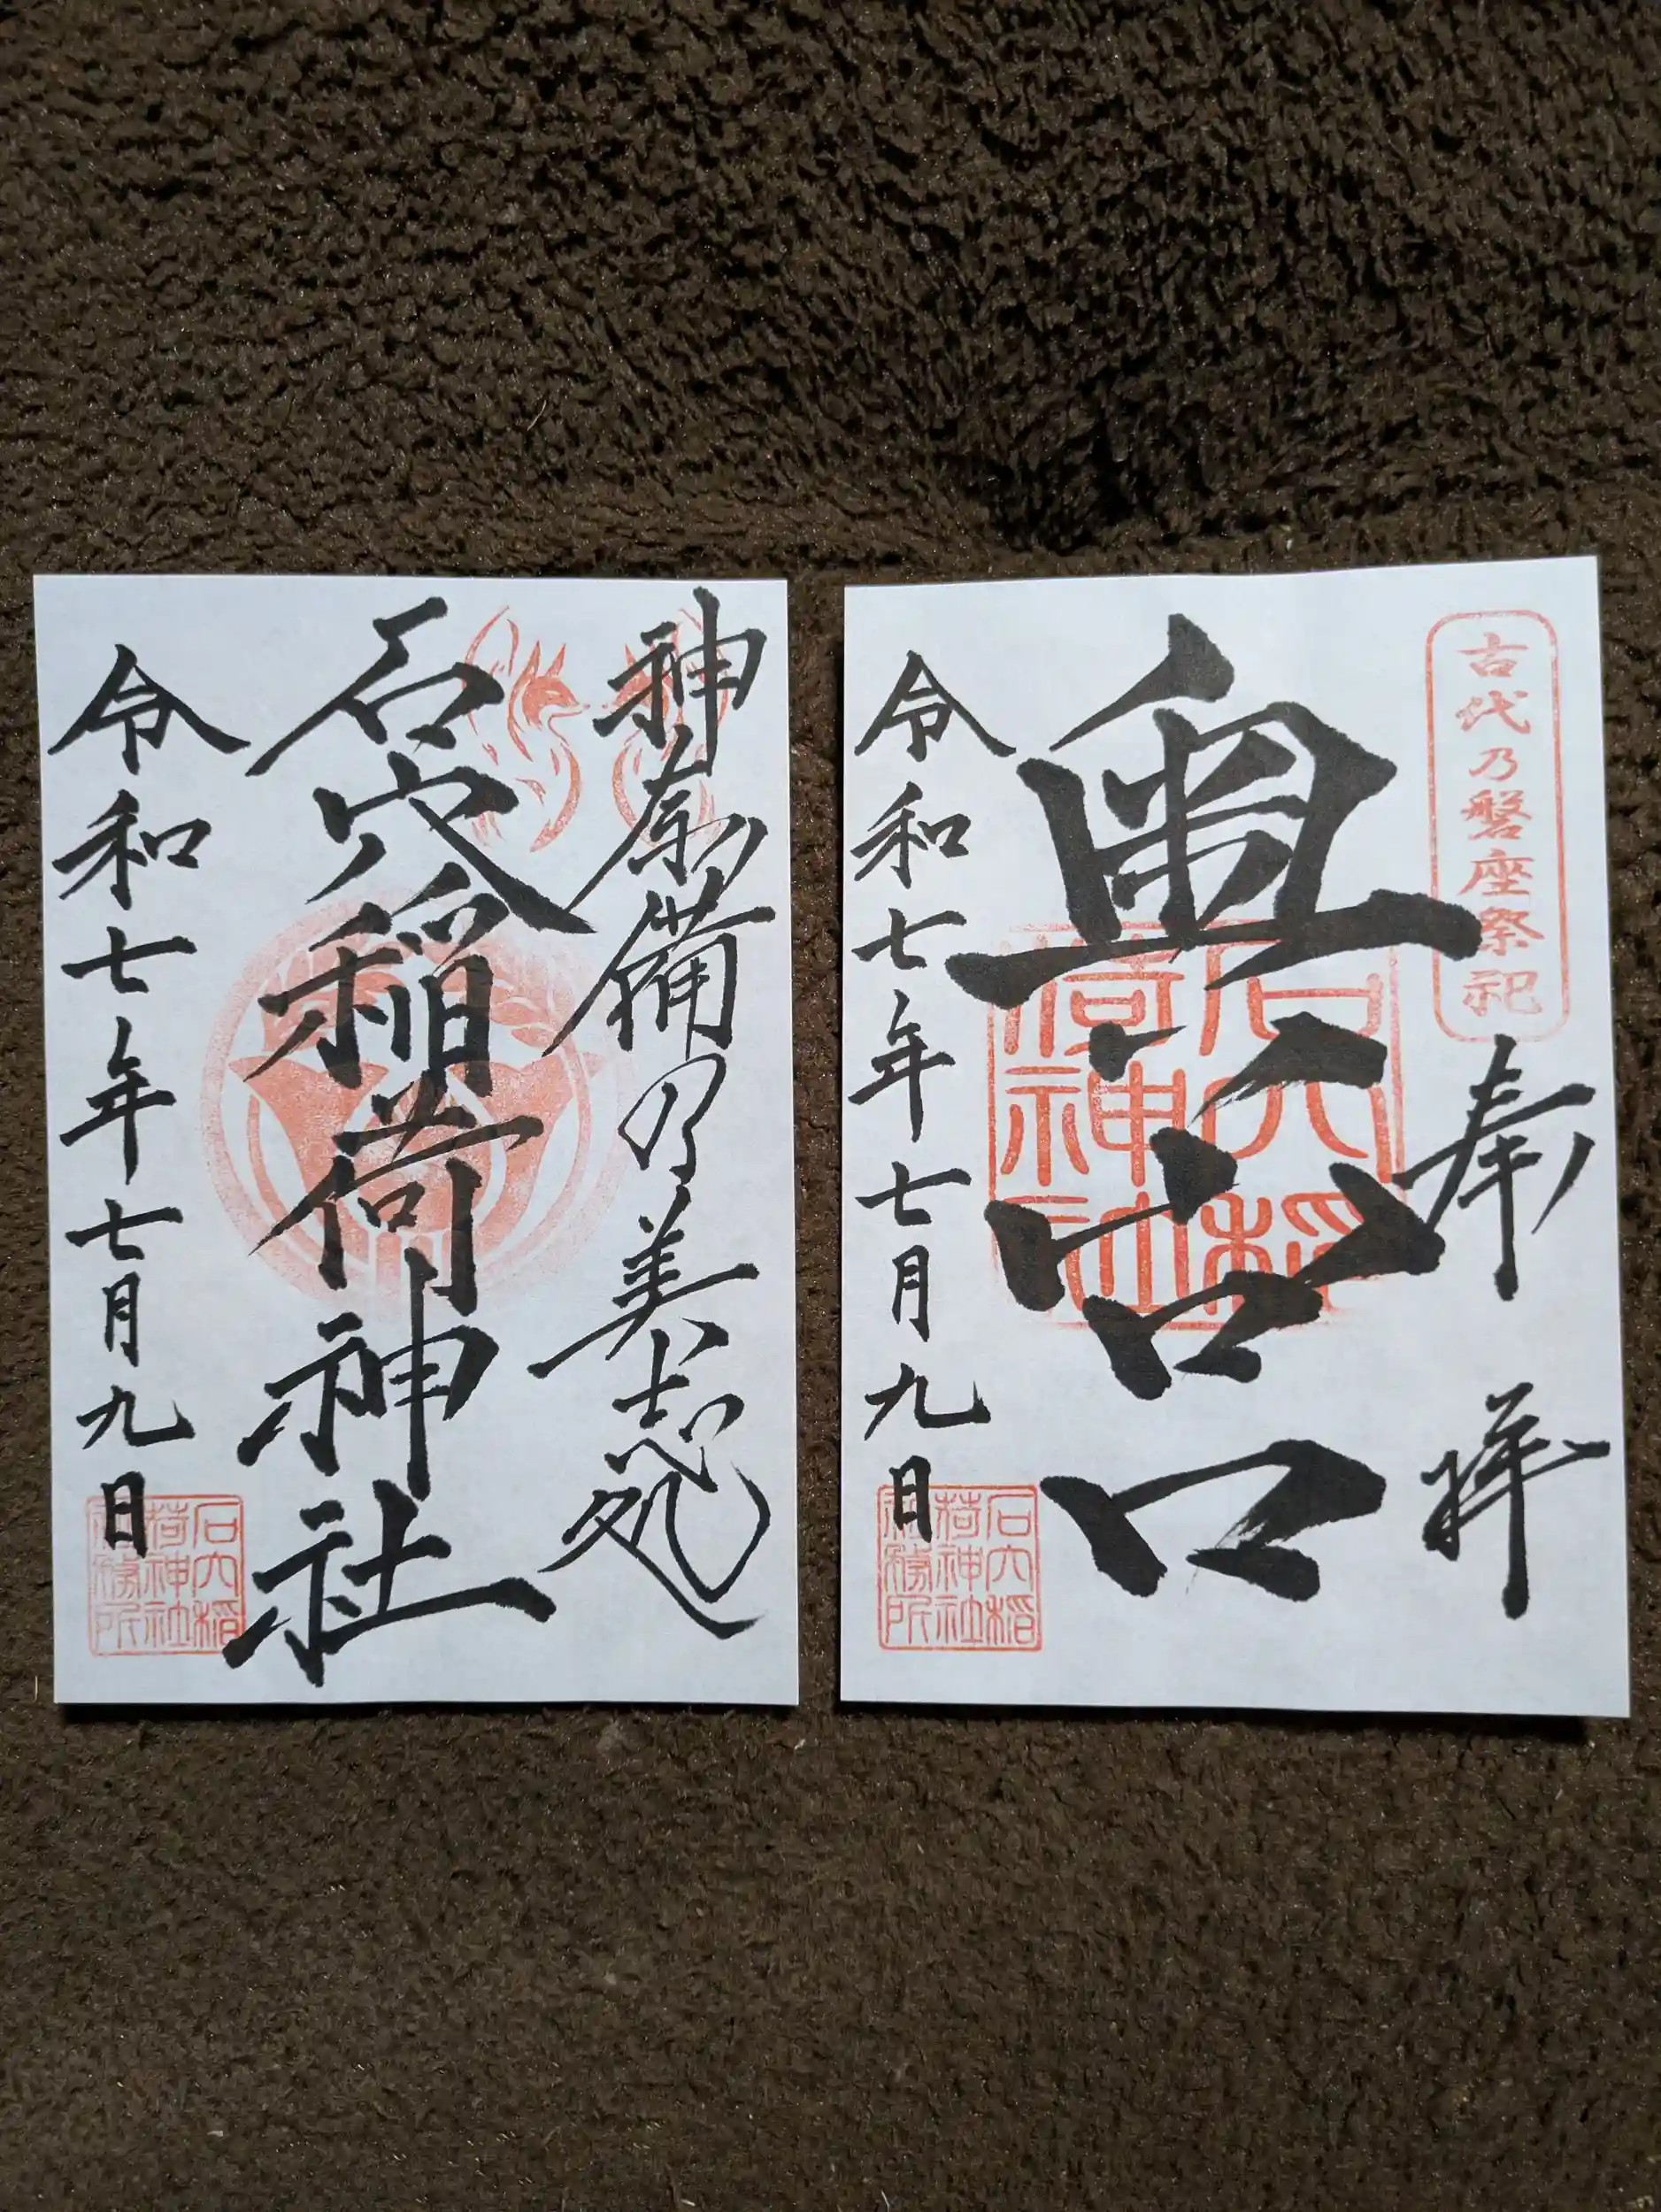 神奈備乃美志処
石穴稲荷神社
令和七年七月九日
石穴稲
荷神社
社務所
古代乃磐座祭祀
奉拝
奥宮
石穴稲
荷神社
令和七年七月九日
石穴稲
荷神社
社務所